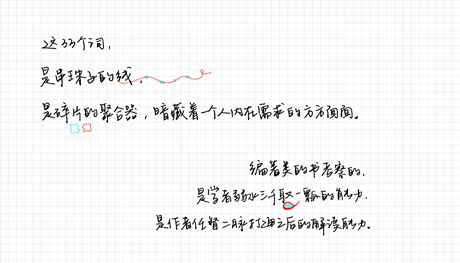 这33个词，
是串珠子的线，
是碎片的聚合器，暗藏着一个人内在需求的方方面面。
编著类的书考察的，
是学者弱水三千取一瓢的能力，
是作者任督二脉打通之后的解读能力。